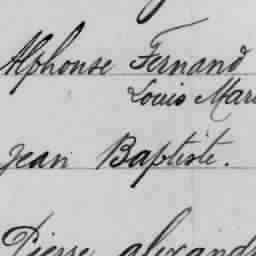 Alphonse Fernand
Louis Mari
Jean Baptiste.
Pierre alexand